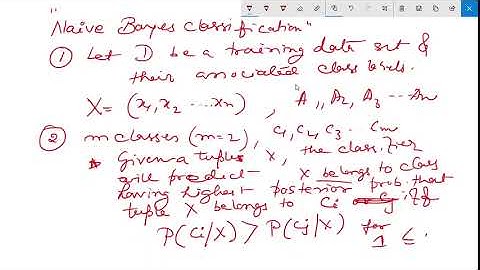 Naive Bayes classification"
① Let D be a training data set &
their associated class levels.
X = (x1, x2 ... xn) , A1, A2, A3 ... An
② m classes (m=2), C1, C2, C3 . Cm
* Given a tuple X, the classifier
will predict X belongs to class
having highest posterior prob. that
tuple X belongs to Ci iff
P(Ci/X) > P(Cj/X) for
1 ≤ .